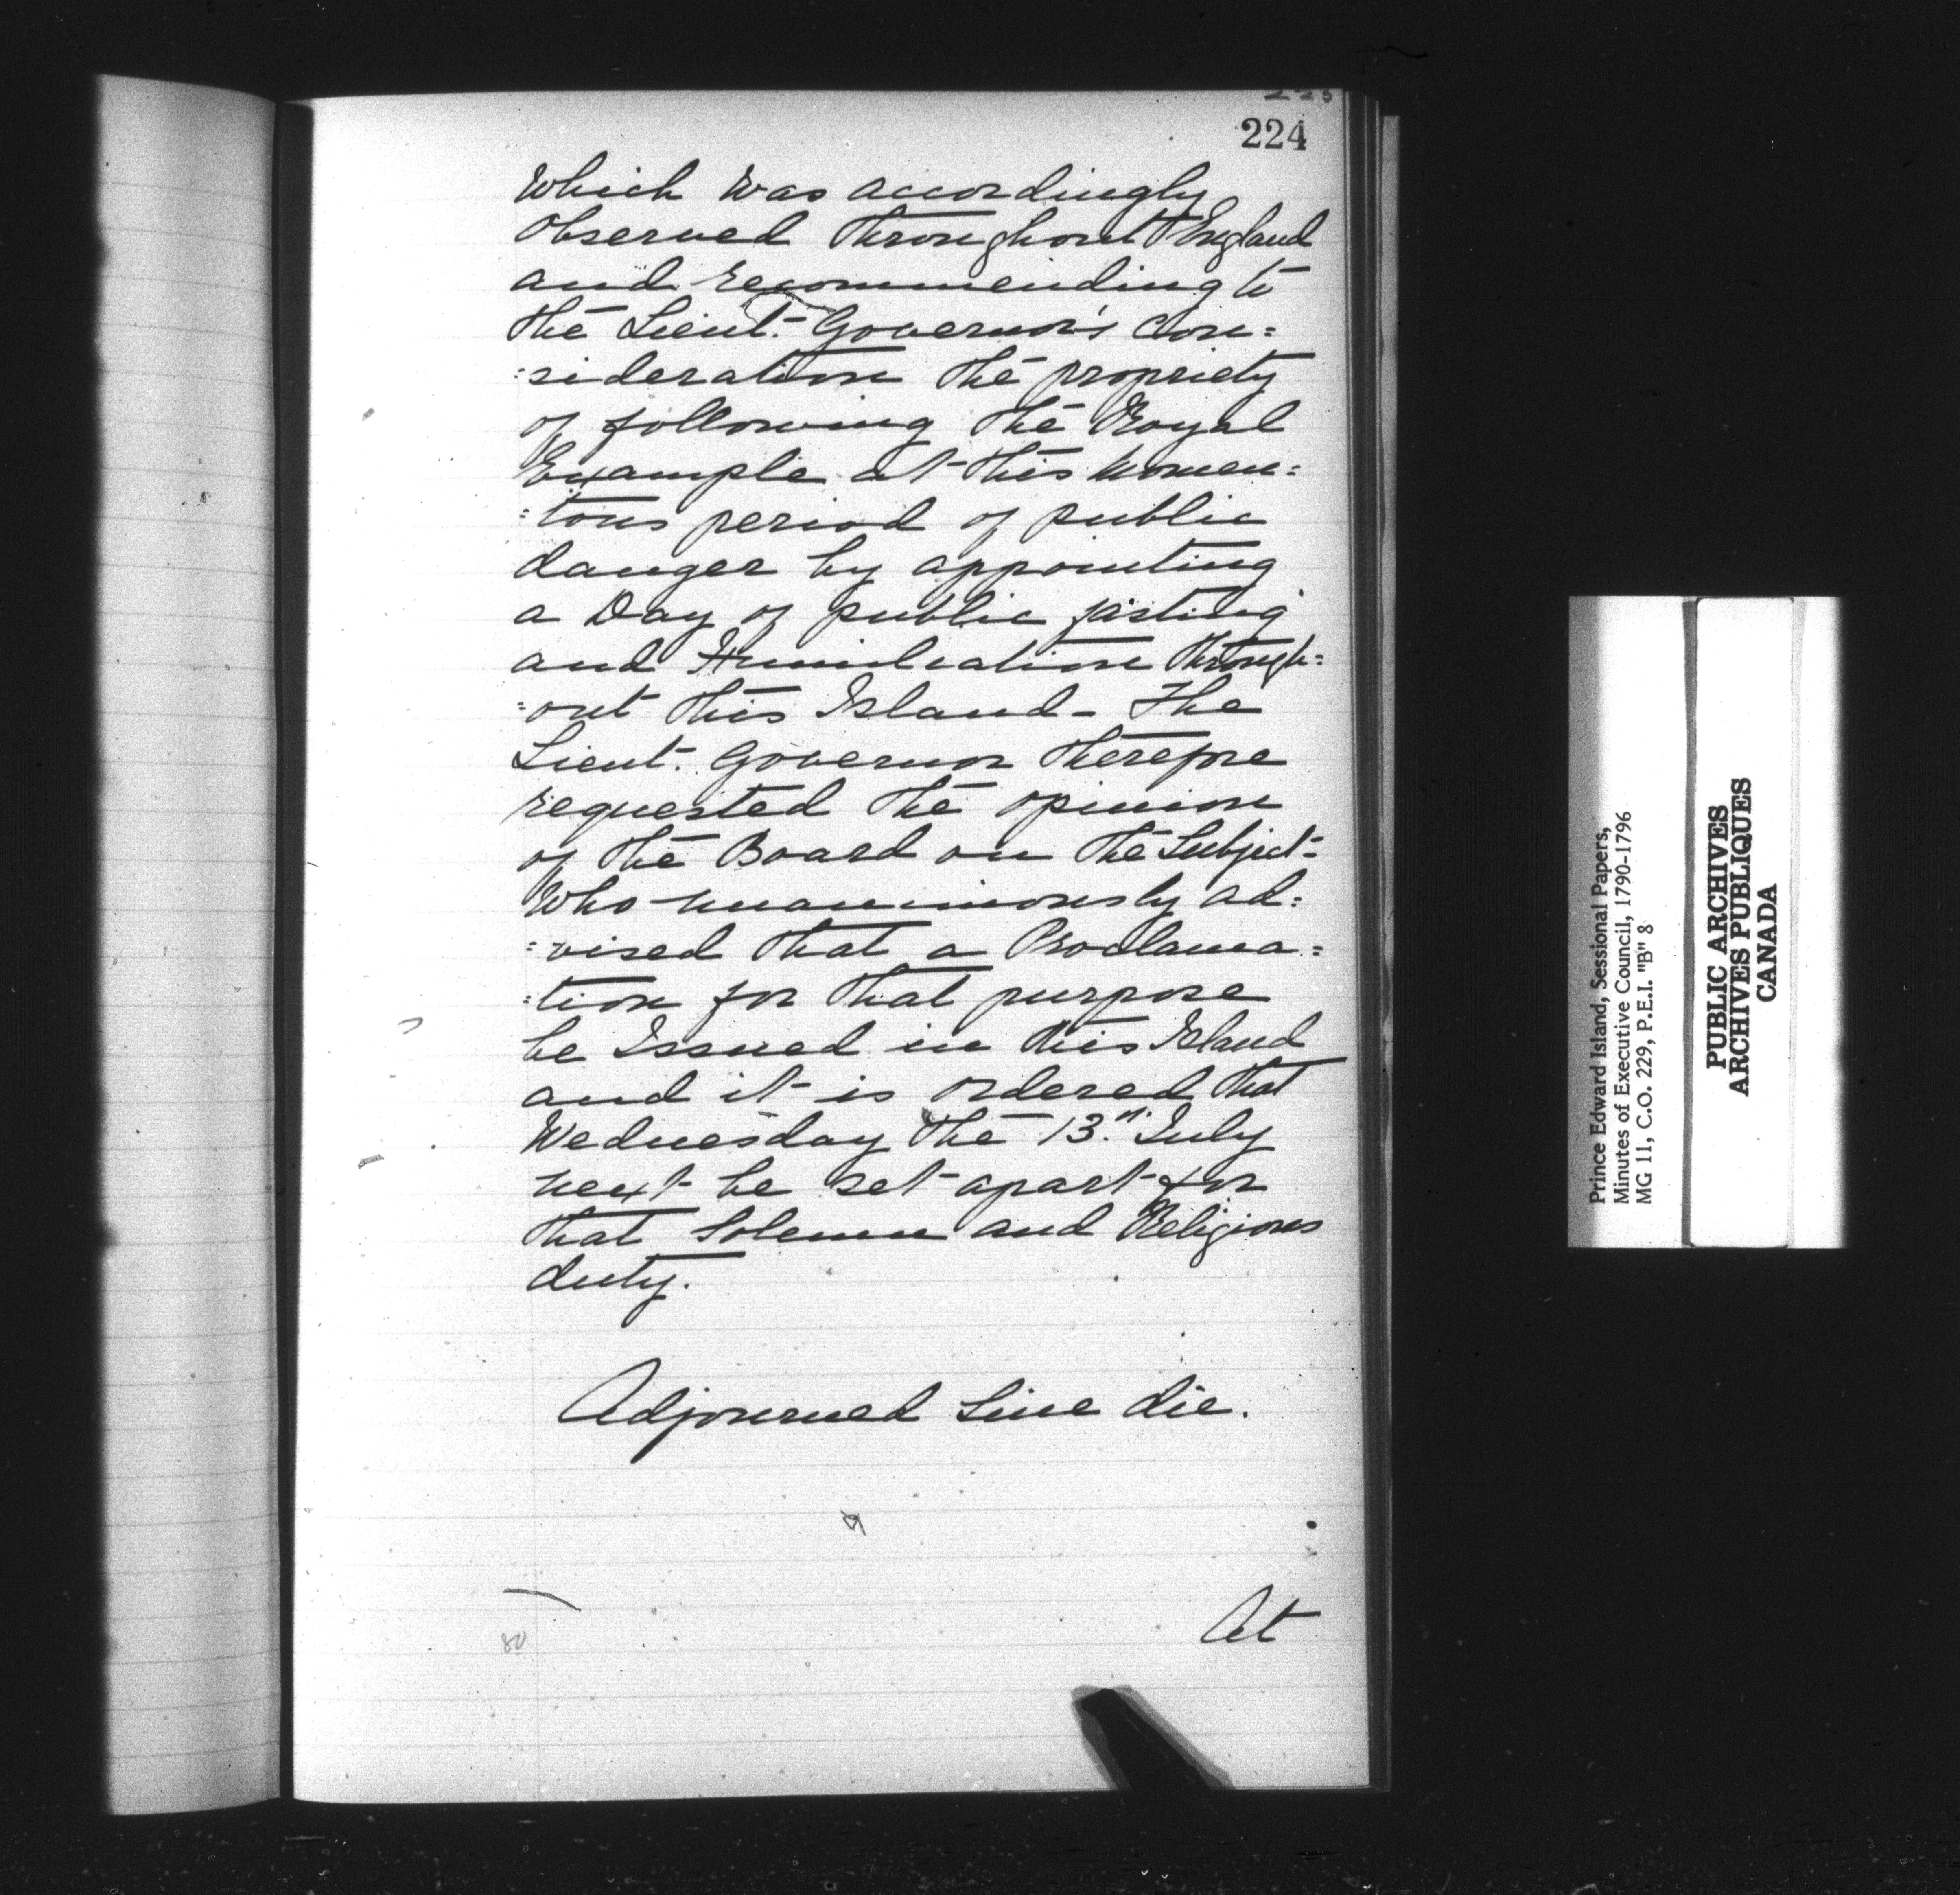 224
Which was accordingly
Observed throughout England
and recommending to
the Lieut. Governor's Con=
=sideration the propriety
of following the Royal
Example at this momen=
=tous period of public
danger by appointing
a Day of public fasting
and Humiliation through=
=out this Island - The
Lieut. Governor therefore
requested the opinion
of the Board on the Subject-
Who unanimously ad=
=vised that a Proclama=
=tion for that purpose
be Issued in this Island
and it is Ordered that
Wednesday the 13.th July
next be set apart for
that Solemn and Religious
duty.
Adjourned Sine die.
At
80
Prince Edward Island, Sessional Papers,
Minutes of Executive Council, 1790-1796
MG 11, C.O. 229, P.E.I. "B" 8
PUBLIC ARCHIVES
ARCHIVES PUBLIQUES
CANADA